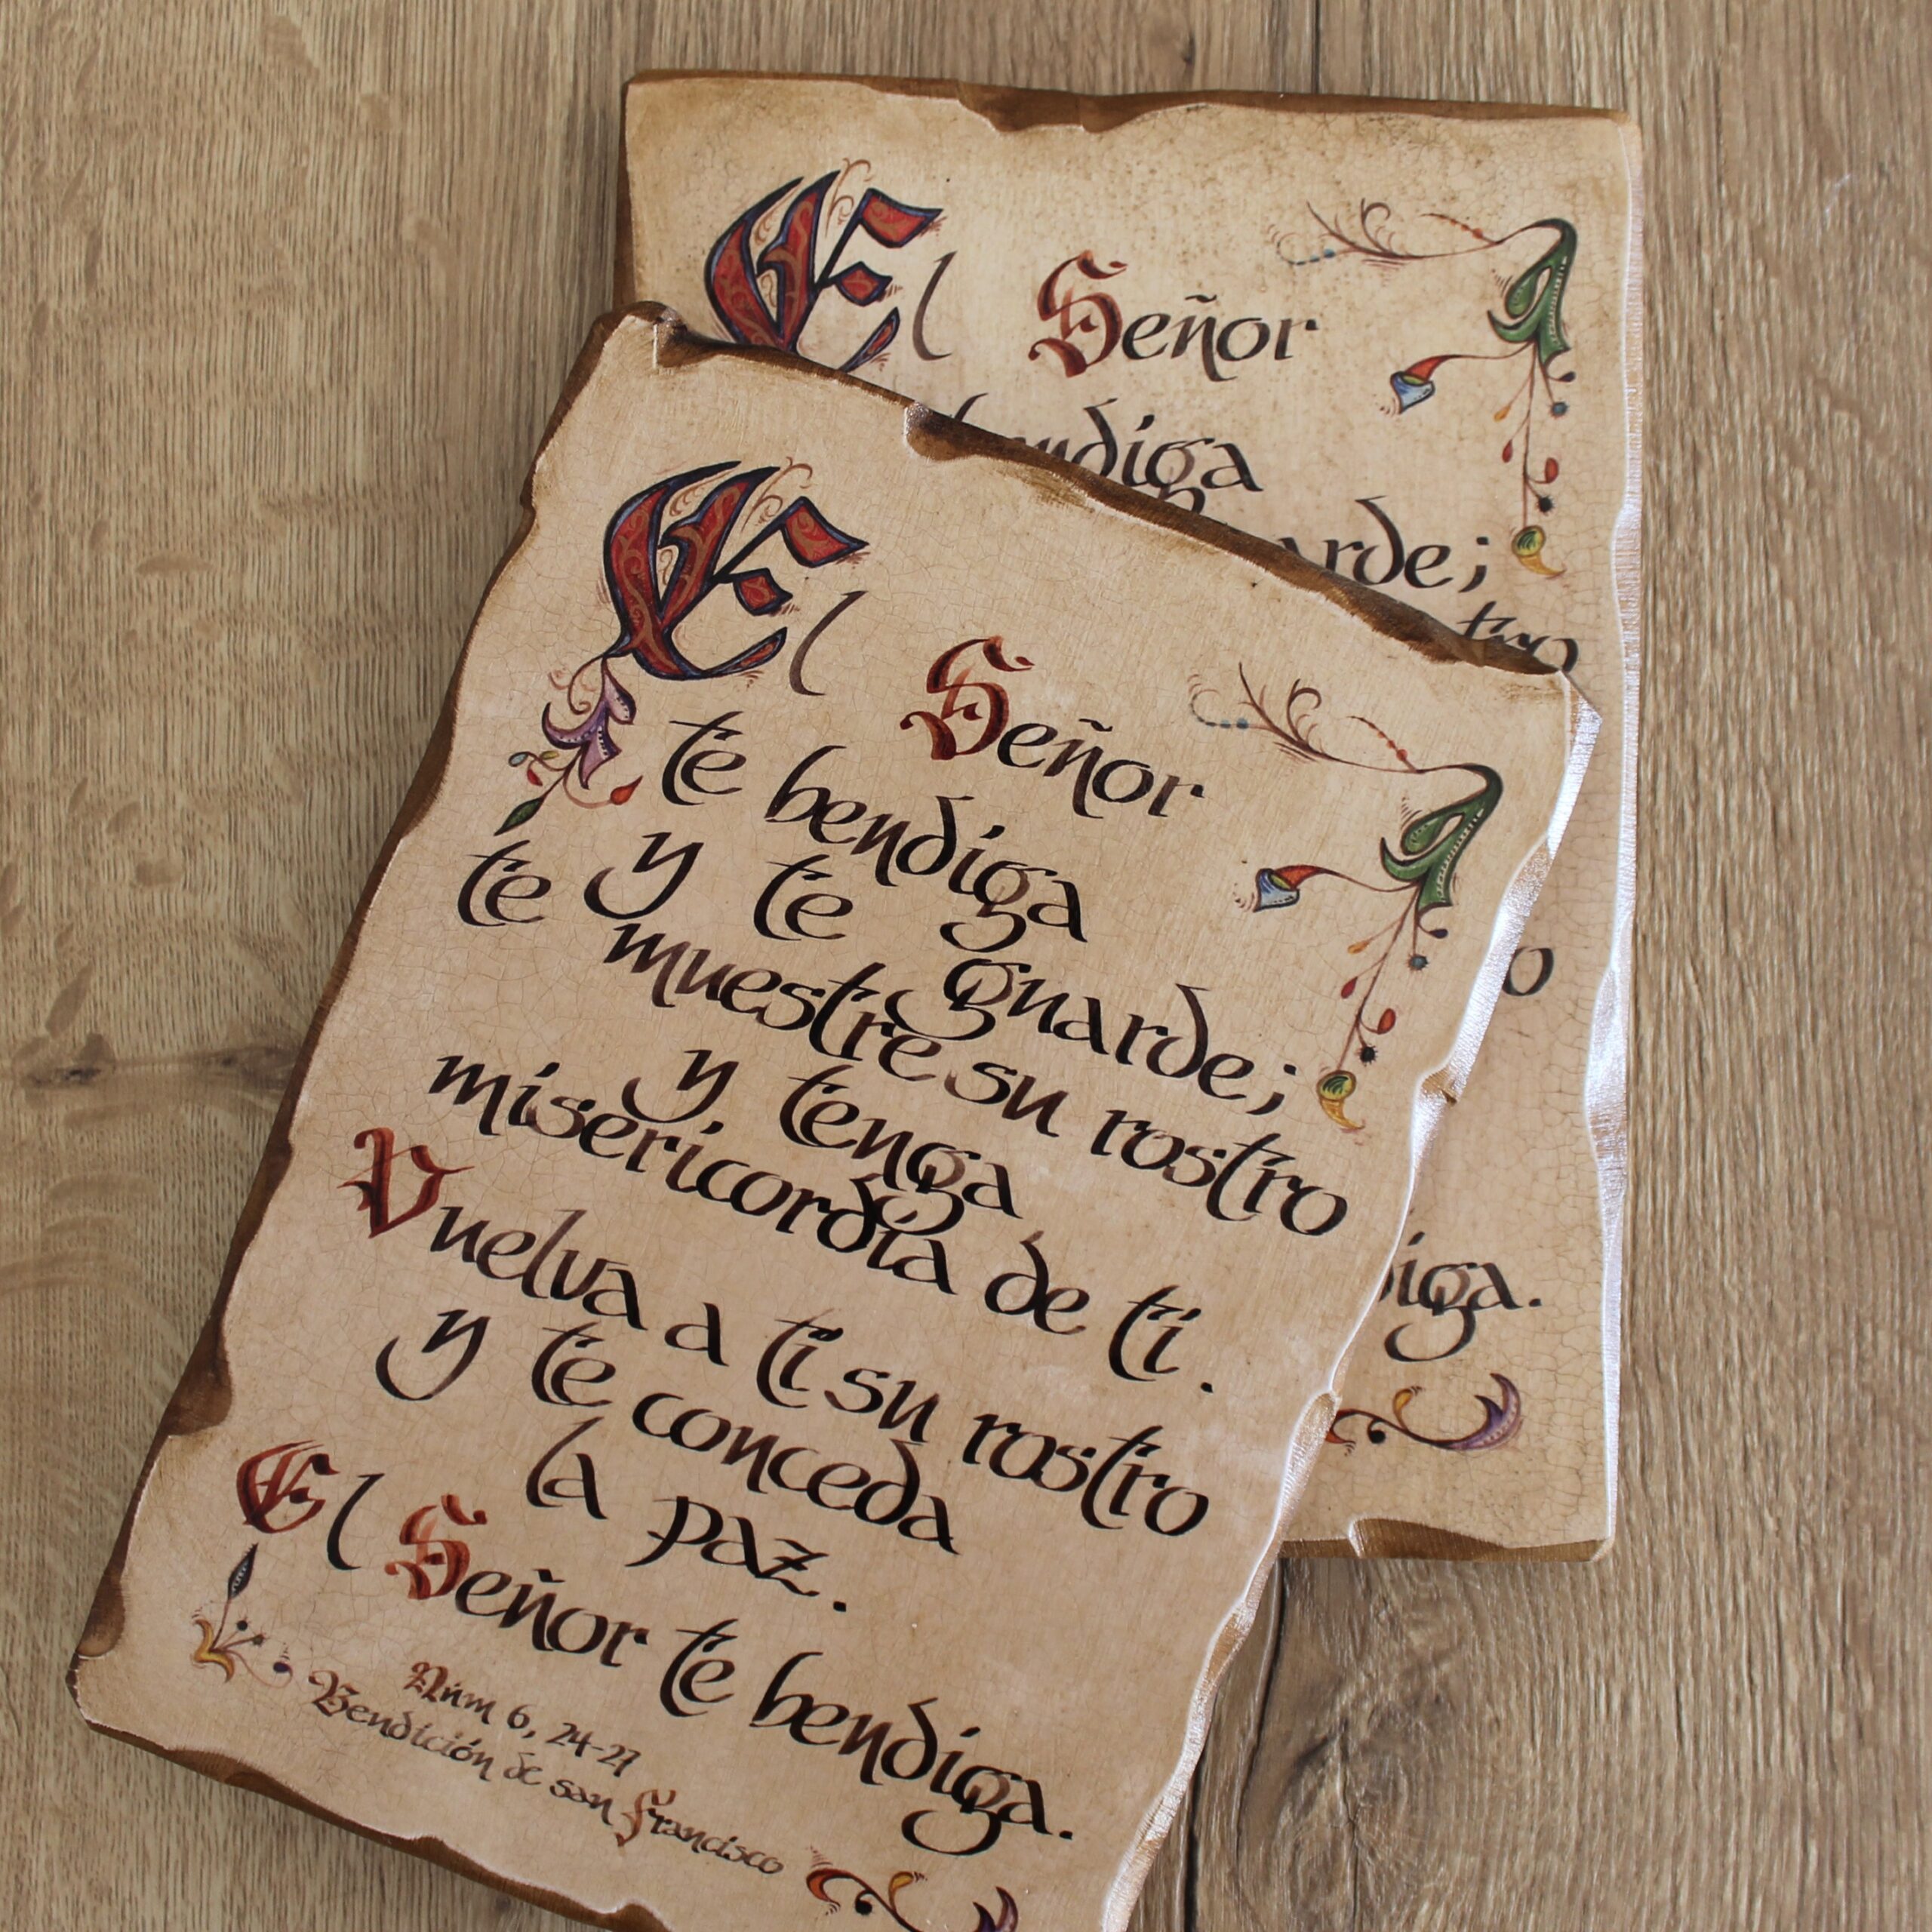 El Señor
te bendiga
y te guarde;
te muestre su rostro
y tenga
misericordia de ti.
Vuelva a ti su rostro
y te conceda
la paz.
El Señor te bendiga.
Núm 6, 24-27
Bendición de san Francisco
El Señor